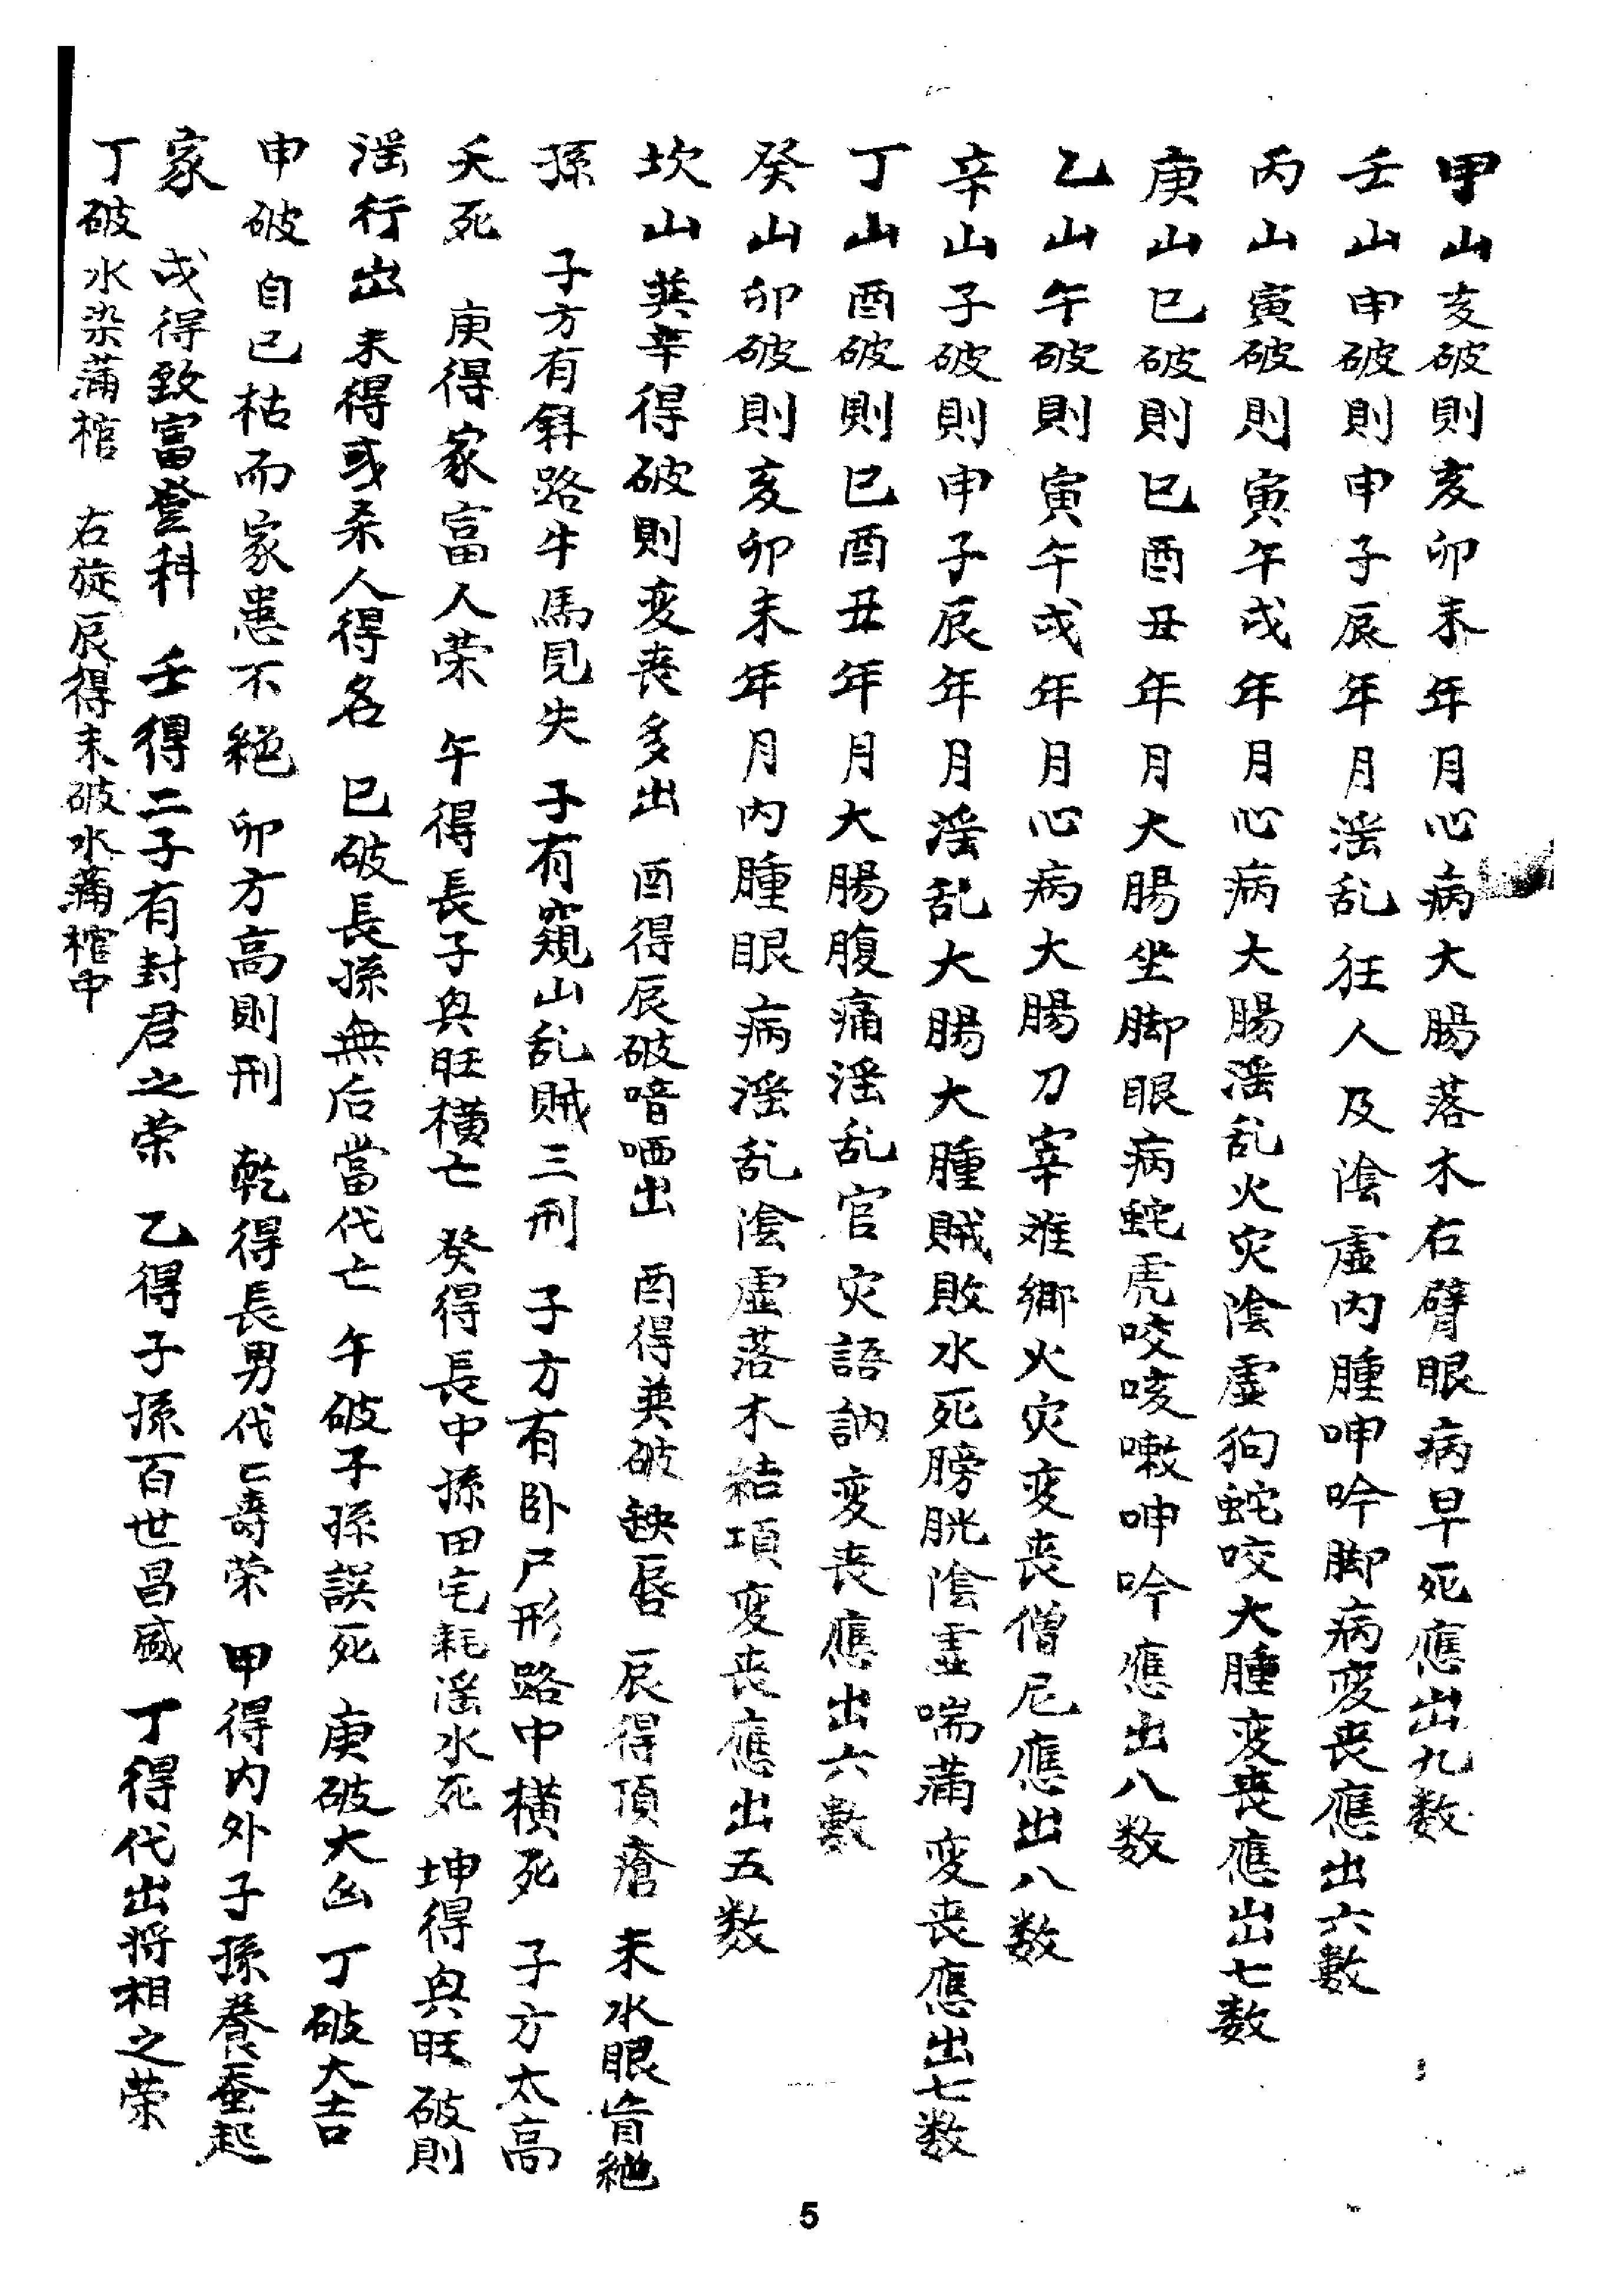 甲山亥破則亥卯未年月心病大腸落木右臂眼病早死應出九数
壬山申破則申子辰年月滛乱狂人及陰虛内腫呻吟脚病変丧應出六數
丙山寅破則寅午戌年月心病大腸滛乱火灾陰虛狗蛇咬大腫変丧應出七数
庚山巳破則巳酉丑年月大腸坐脚眼病蛇虎咬咳嗽呻吟應出八数
乙山午破則寅午戌年月心病大腸刀宰难鄉火灾変丧僧尼應出八数
辛山子破則申子辰年月滛乱大腸大腫賊敗水死膀胱陰虛喘滿変丧應出七数
丁山酉破則巳酉丑年月大腸腹痛滛乱官灾語訥変丧應出六數
癸山卯破則亥卯未年月内腫眼病滛乱陰虛落木結項変丧應出五数
坎山巽辛得破則変丧多出 酉得辰破喑哂出 酉得巽破缺唇 辰得頂瘡 未水眼盲絶
孫 子方有斜路牛馬見失 子有窺山乱賊三刑 子方有卧尸形路中横死 子方太高
夭死 庚得家富人荣 午得長子與旺横亡 癸得長中孫田宅耗滛水死 坤得與旺 破則
滛行出 未得或柔人得名 巳破長孫無后當代亡 午破子孫誤死 庚破大凶 丁破大吉
申破自己枯而家患不絕 卯方高則刑 乾得長男代亡壽荣 甲得内外子孫養蚕起
家 戌得致富登科 壬得二子有封君之荣 乙得子孫百世昌盛 丁得代出将相之荣
丁破水染蒲棺 右旋辰得未破水滿棺中
5